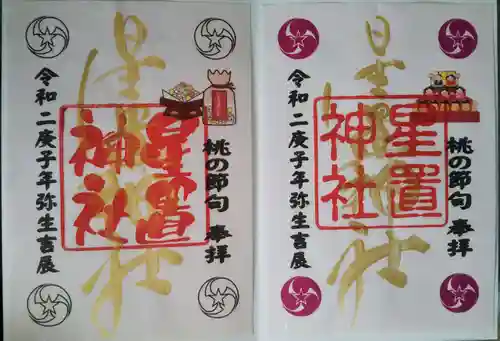 奉拝
桃の節句
星置神社
星置神社
令和二庚子年弥生吉展
奉拝
桃の節句
星置神社
星置神社
令和二庚子年弥生吉展